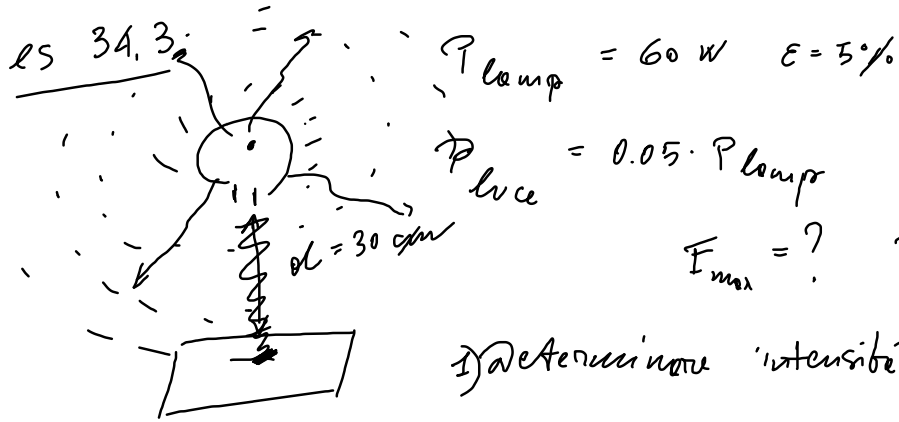 es 34.3
P lamp = 60 W ε = 5%
P luce = 0.05 · P lamp
d = 30 cm
E max = ?
1) Determinare intensità